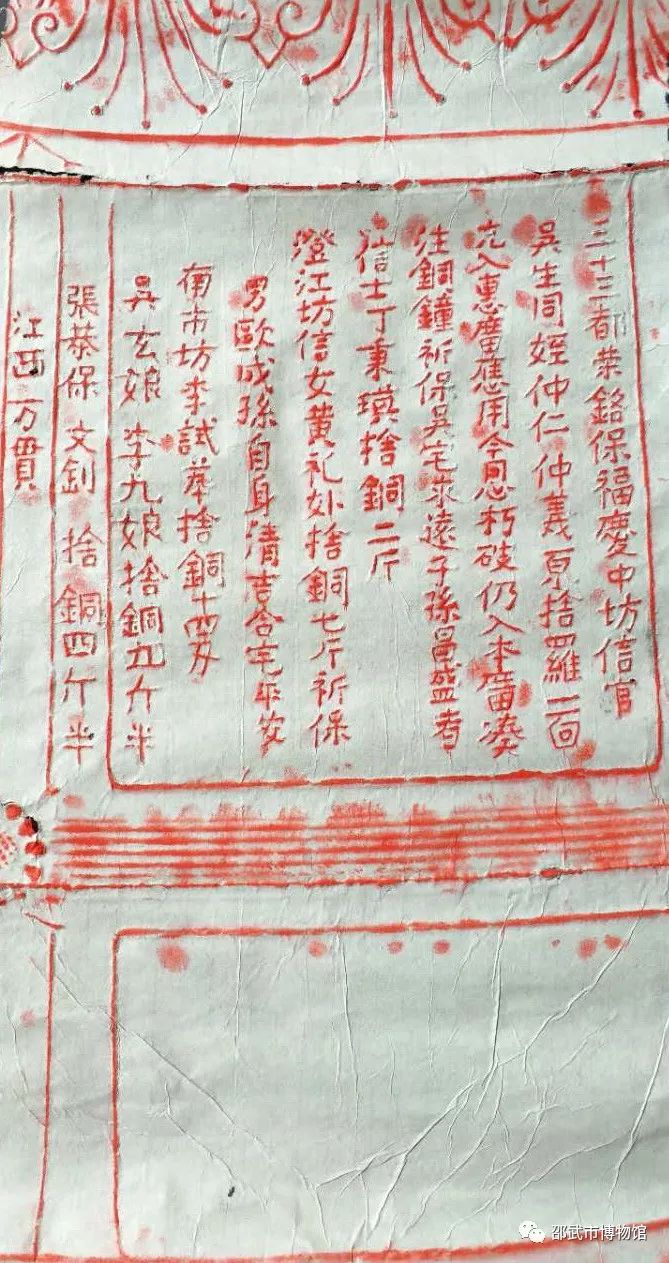 三十三都荣銘保福慶中坊信官
吳生同姪仲仁仲義原捨羅一面
入惠應用今思朽破仍入本湊
住銅鐘祈保吳宅求遠子孫昌盛者
信士丁秉瑛捨銅二斤
澄江坊信女黄礼妳捨銅七斤祈保
男歐成孫自身清吉合宅平安
南市坊李試捨銅十四斤
吳玄娘 李九娘捨銅五斤半
張恭保 文釗 捨銅四斤半
江西万貫
邵武市博物馆